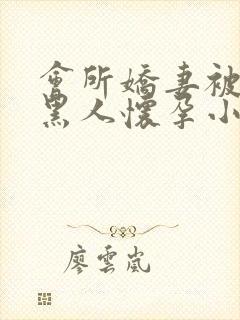 會所嬌妻被
黑人懷孕小
廖雲嵐